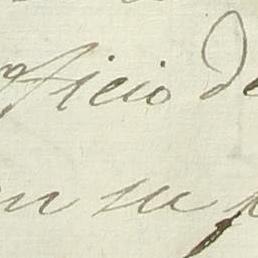 officio de
en su